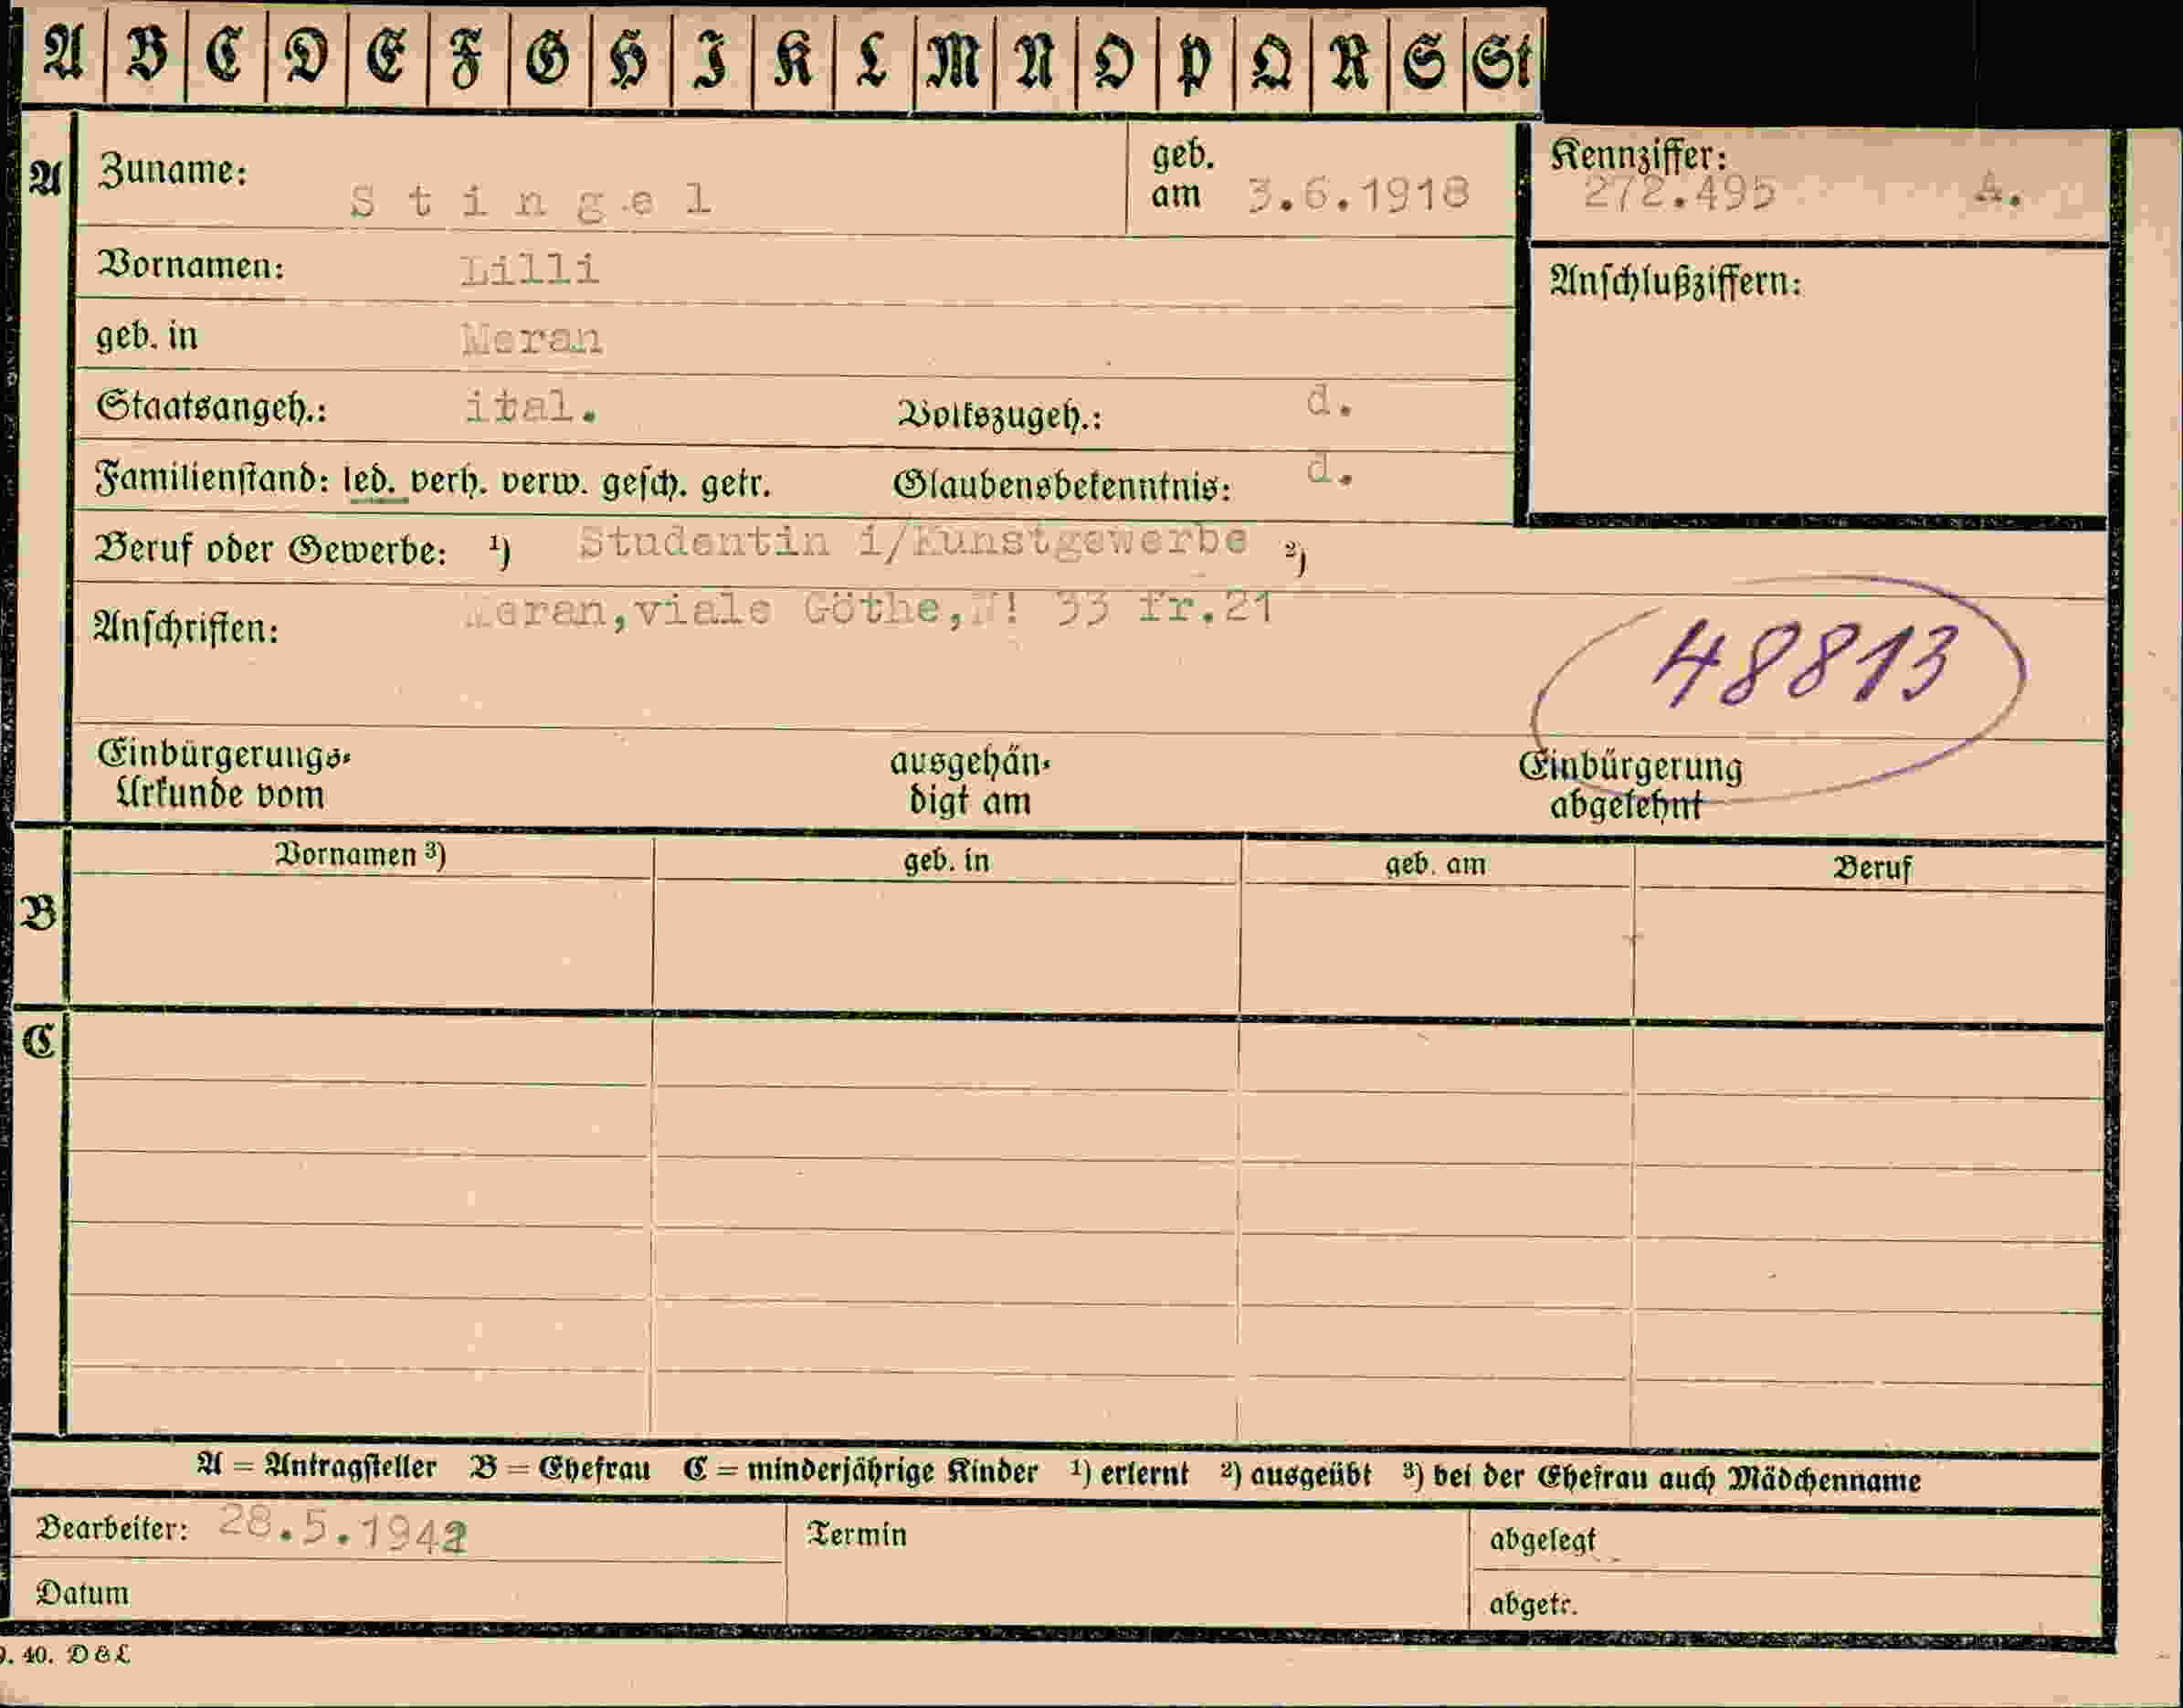 A B C D E F G H I K L M N O P Q R S St
A Zuname: Stingel geb. am 3.6.1918 Kennziffer: 272.495 A.
Vornamen: Lilli Anschlußziffern:
geb. in Meran
Staatsangeh.: ital. Volkszugeh.: d.
Familienstand: led. verh. verw. gesch. getr. Glaubensbekenntnis: d.
Beruf oder Gewerbe: ¹) Studentin i/Kunstgewerbe ²)
Anschriften: Meran,viale Göthe, 33 fr.21
48813
Einbürgerungs- ausgehän- Einbürgerung
Urkunde vom digt am abgelehnt
Vornamen ³) geb. in geb. am Beruf
B
C
A = Antragsteller B = Ehefrau C = minderjährige Kinder ¹) erlernt ²) ausgeübt ³) bei der Ehefrau auch Mädchenname
Bearbeiter: 28.5.1942 Termin abgelegt
Datum abgetr.
9. 40. D & L